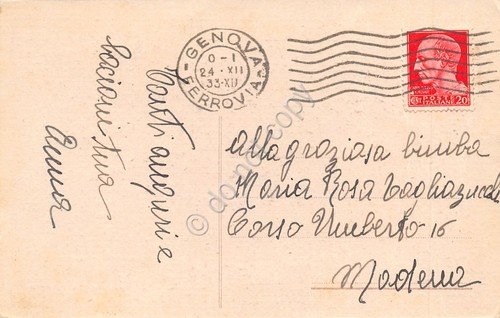 GENOVA
0-1
24·XII
33·XII
FERROVIA
POSTE
ITALIANE
20
Tanti auguri e
bacioni tua
Anna
Alla graziosa bimba
Maria Rosa Tagliazucchi
Corso Umberto 16
Modena
do not copy